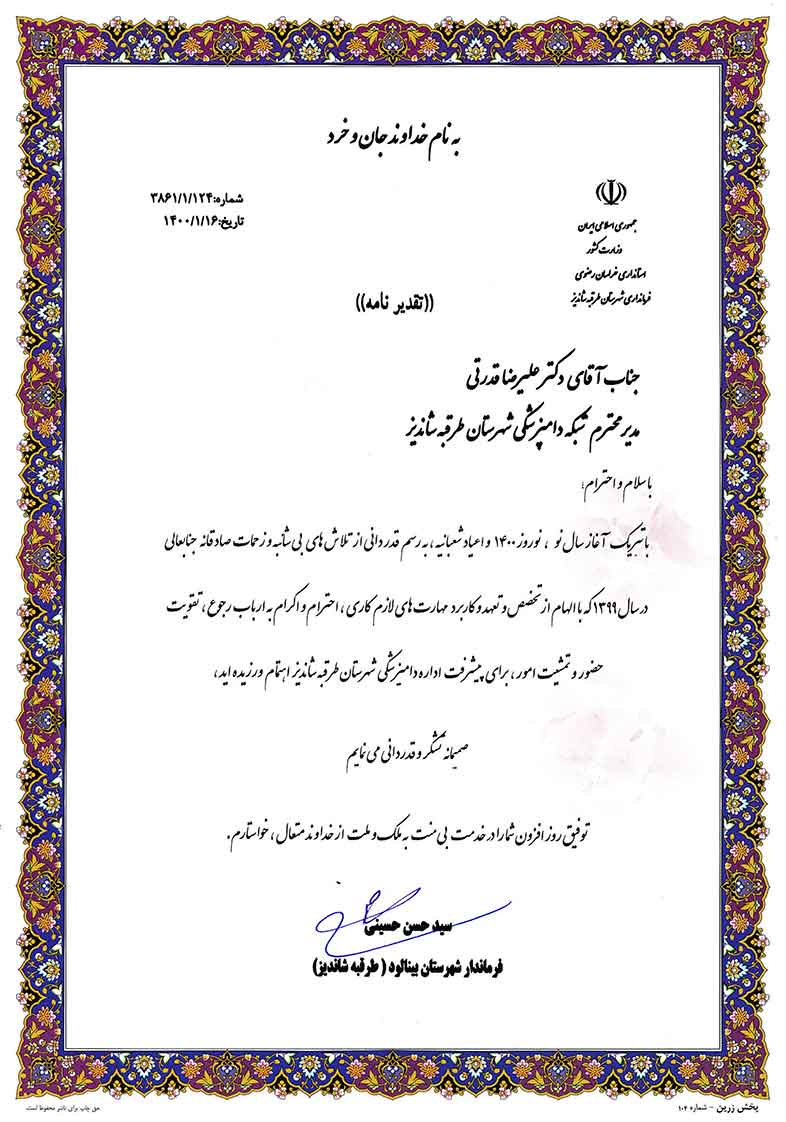 به نام خداوند جان و خرد
جمهوری اسلامی ایران
وزارت کشور
استانداری خراسان رضوی
فرمانداری شهرستان طرقبه شاندیز
شماره:۳۸۶۱/۱/۱۲۴
تاریخ:۱۴۰۰/۱/۱۶
((تقدیر نامه))
جناب آقای دکتر علیرضا قدرتی
مدیر محترم شبکه دامپزشکی شهرستان طرقبه شاندیز
با سلام و احترام؛
با تبریک آغاز سال نو ، نوروز ۱۴۰۰ و اعیاد شعبانیه، به رسم قدردانی از تلاش های بی شائبه و زحمات صادقانه جنابعالی
در سال ۱۳۹۹ که با الهام از تخصص و تعهد و کاربرد مهارت های لازم کاری ، احترام و اکرام به ارباب رجوع ، تقویت
حضور و تمشیت امور ، برای پیشرفت اداره دامپزشکی شهرستان طرقبه شاندیز اهتمام ورزیده اید،
صمیمانه تشکر و قدردانی می نمایم
توفیق روز افزون شما را در خدمت بی منت به ملک و ملت از خداوند متعال ، خواستارم.
سید حسن حسینی
فرماندار شهرستان بینالود ( طرقبه شاندیز)
پخش زرین - شماره ۱۰۴
حق چاپ برای ناشر محفوظ است.